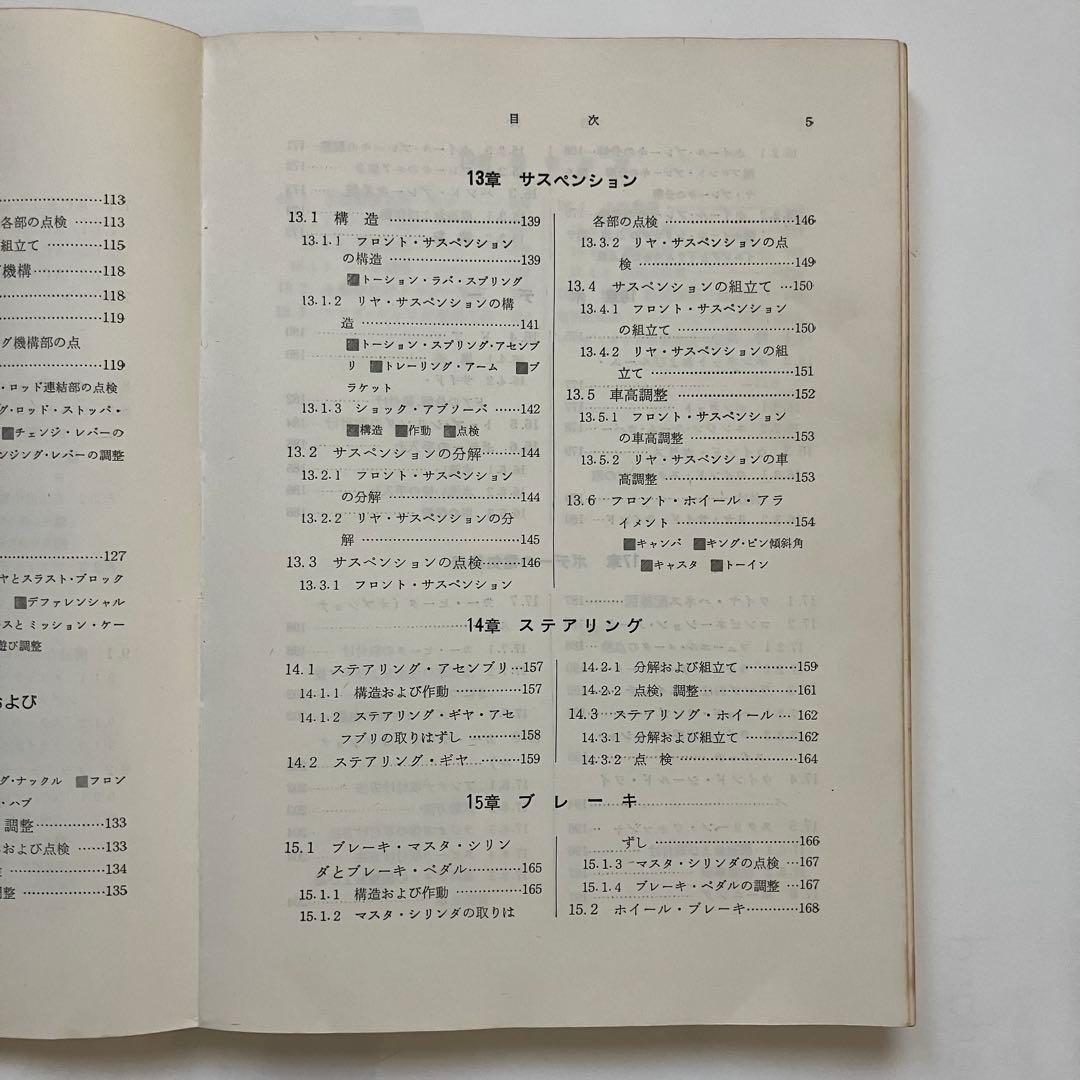 113
各部の点検 ……113
組立て …………115
機構……………118
……………118
……………119
グ機構部の点
……………119
・ロッド連結部の点検
グ・ロッド・ストッパ・
■チェンジ・レバーの
ンジング・レバーの調整
……………127
ヤとスラスト・ブロック
■デファレンシャル
スとミッション・ケー
遊び調整
および
グ・ナックル ■フロン
・ハブ
調整……………133
および点検 ……133
……………134
調整 ……………135
目 次 5
13章 サスペンション
13.1 構 造 ……………139
13.1.1 フロント・サスペンション
の構造 ……………139
■トーション・ラバ・スプリング
13.1.2 リヤ・サスペンションの構
造 ……………141
■トーション・スプリング・アセンブ
リ ■トレーリング・アーム ■ブ
ラケット
13.1.3 ショック・アブソーバ ……142
■構造 ■作動 ■点検
13.2 サスペンションの分解………144
13.2.1 フロント・サスペンション
の分解 ……………144
13.2.2 リヤ・サスペンションの分
解 ……………145
13.3 サスペンションの点検………146
13.3.1 フロント・サスペンション
各部の点検 ……………146
13.3.2 リヤ・サスペンションの点
検 ……………149
13.4 サスペンションの組立て …150
13.4.1 フロント・サスペンション
の組立て ……………150
13.4.2 リヤ・サスペンションの組
立て ……………151
13.5 車高調整 ……………152
13.5.1 フロント・サスペンション
の車高調整 ……………153
13.5.2 リヤ・サスペンションの車
高調整 ……………153
13.6 フロント・ホイール・アラ
イメント ……………154
■キャンバ ■キング・ピン傾斜角
■キャスタ ■トーイン
14章 ステアリング
14.1 ステアリング・アセンブリ…157
14.1.1 構造および作動 …………157
14.1.2 ステアリング・ギヤ・アセ
フブリの取りはずし …………158
14.2 ステアリング・ギヤ ………159
14.2.1 分解および組立て …………159
14.2.2 点検，調整 ……………161
14.3 ステアリング・ホイール … 162
14.3.1 分解および組立て …………162
14.3.2 点 検 ……………164
15章 ブ レ ー キ
15.1 ブレーキ・マスタ・シリン
ダとブレーキ・ペダル………165
15.1.1 構造および作動 …………165
15.1.2 マスタ・シリンダの取りは
ずし ……………166
15.1.3 マスタ・シリンダの点検 …167
15.1.4 ブレーキ・ペダルの調整 …167
15.2 ホイール・ブレーキ…………168